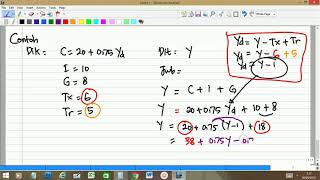 Contoh
Dik: C = 20 + 0.75 Yd
I = 10
G = 8
Tx = 6
Tr = 5
Dit: Y
Jwb:
Y = C + I + G
Y = 20 + 0.75 Yd + 10 + 8
Y = 20 + 0.75 (Y-1) + 18
= 38 + 0.75 Y - 0.7
Yd = Y - Tx + Tr
Yd = Y - 6 + 5
Yd = Y - 1